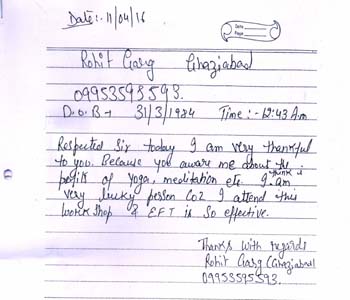 Date:- 11/04/16
Date
Page
Rohit Garg Ghaziabad
09953593593.
D.O.B → 31/3/1984 Time:- 12:43 A.m
Respected Sir today I am very thankful
to you. Because you aware me about the
pefits of yoga, meditation etc. I think i am
very lucky person Coz I attend this
workshop & EFT is so effective.
Thanks with regards
Rohit Garg (Ghaziabad
09953593593.